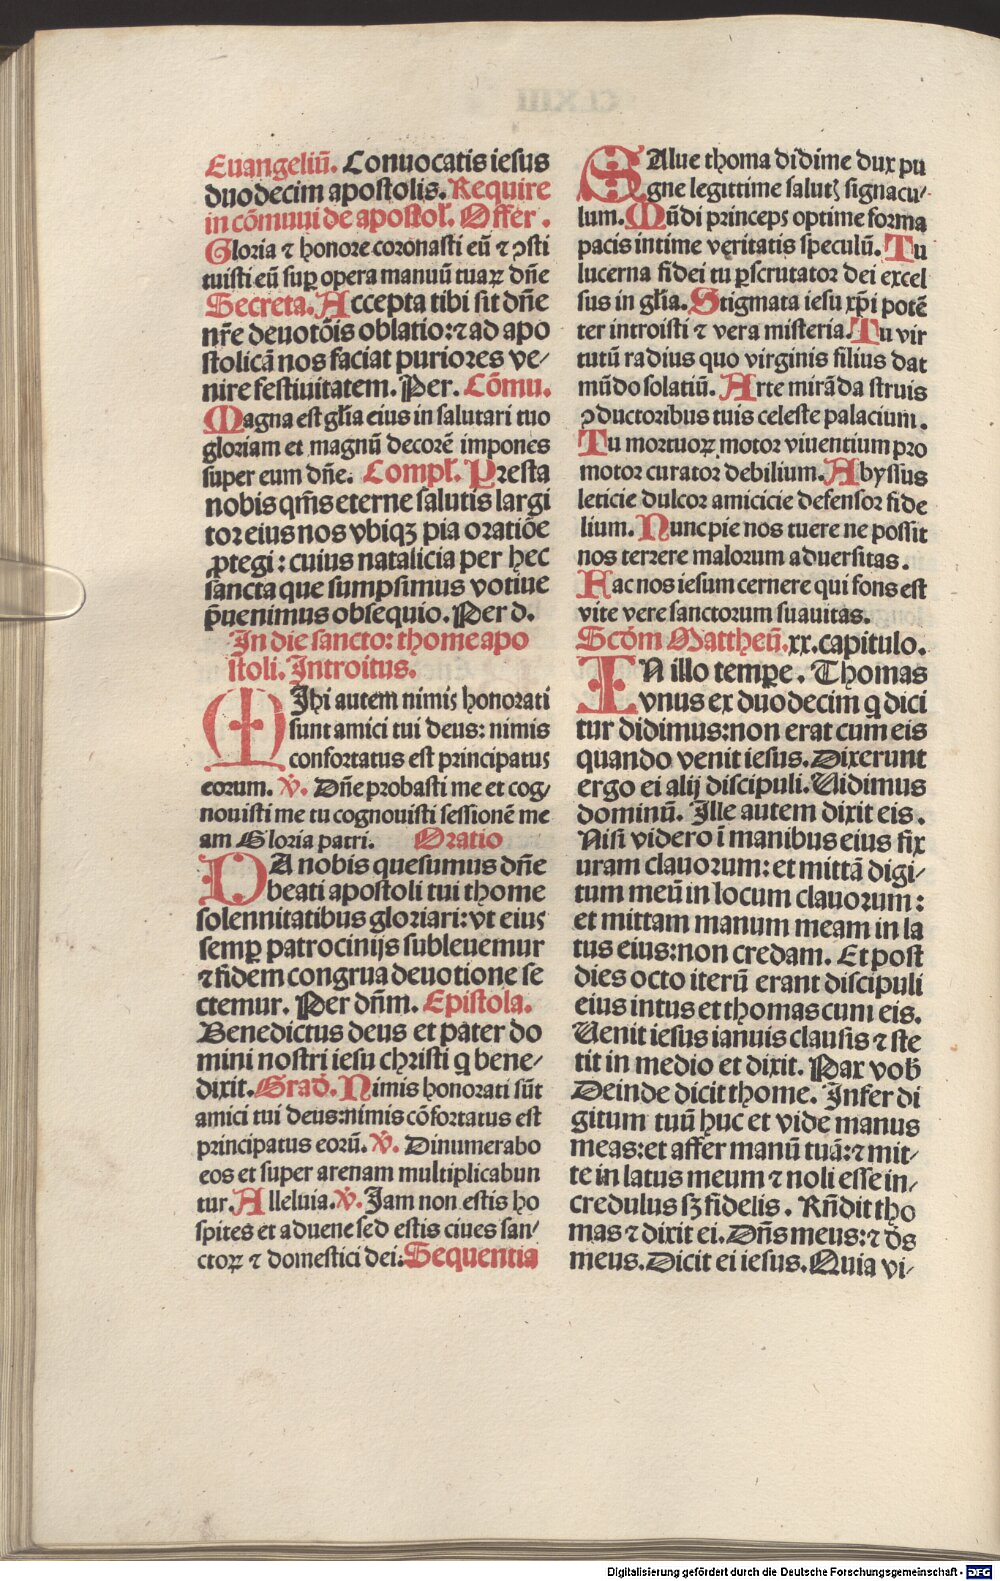 Euangeliū. Conuocatis iesus
duodecim apostolis. Require
in cōmuui de apostoł. Offer.
Gloria ⁊ honore coronasti eū ⁊ ꝯsti
tuisti eū suꝑ opera manuū tuaꝝ dn̄e
Secreta. Accepta tibi sit dn̄e
nr̄e deuotōis oblatio: ⁊ ad apo
stolicā nos faciat puriores ve⸗
nire festiuitatem. Per. Cōmu.
Magna est gl̄ia eius in salutari tuo
gloriam et magnū decorē impones
super eum dn̄e. Compł. Presta
nobis qm̄s eterne salutis largi
tor eius nos vbiqꝫ pia oratiōe
ꝓtegi: cuius natalicia per hec
sancta que sumpsimus votiue
p̄uenimus obsequio. Per d.
In die sancto: thome apo
stoli. Introitus.
MIhi autem nimis honorati
sunt amici tui deus: nimis
confortatus est principatus
eorum. v̇. Dn̄e probasti me et cog⸗
nouisti me tu cognouisti sessionē me
am Gloria patri. Oratio
DA nobis quesumus dn̄e
beati apostoli tui thome
solennitatibus gloriari: vt eius
semꝑ patrocinijs subleuemur
⁊ fidem congrua deuotione se
ctemur. Per dn̄m. Epistola.
Benedictus deus et pater do
mini nostri iesu christi q̇ bene⸗
dixit. Grad̄. Nimis honorati sūt
amici tui deus: nimis cōfortatus est
principatus eorū. v̇. Dinumerabo
eos et super arenam multiplicabun
tur. Alleluia. v̇. Jam non estis ho
spites et aduene sed estis ciues san⸗
ctoꝝ ⁊ domestici dei: Sequentia
SAlue thoma didime dux pu
gne legittime salutꝭ signacu⸗
lum. Mūdi princeps optime forma
pacis intime veritatis speculū. Tu
lucerna fidei tu ꝑscrutator dei excel
sus in gl̄ia. Stigmata iesu xp̄i potē
ter introisti ⁊ vera misteria. Tu vir
tutū radius quo virginis filius dat
mūdo solatiū. Arte mirāda struis
ꝯductoribus tuis celeste palacium.
Tu mortuoꝝ motor viuentium pro
motor curator debilium. Abyssus
leticie dulcor amicicie defensor fide
lium. Nunc pie nos tuere ne possit
nos terrere malorum aduersitas.
Fac nos iesum cernere qui fons est
vite vere sanctorum suauitas.
Scd̄m Mattheū. xx. capitulo.
IN illo tempꝑe. Thomas
vnus ex duodecim q̇ dici
tur didimus: non erat cum eis
quando venit iesus. Dixerunt
ergo ei alij discipuli. Uidimus
dominū. Ille autem dixit eis.
Nisi videro ī manibus eius fix
uram clauorum: et mittā digi⸗
tum meū in locum clauorum:
et mittam manum meam in la
tus eius: non credam. Et post
dies octo iterū erant discipuli
eius intus et thomas cum eis.
Uenit iesus ianuis clausis ⁊ ste
tit in medio et dixit. Pax vob̄
Deinde dicit thome. Infer di
gitum tuū huc et vide manus
meas: et affer manū tuā: ⁊ mit⸗
te in latus meum ⁊ noli esse in⸗
credulus sꝫ fidelis. Rn̄dit tho
mas ⁊ dixit ei. Dn̄s meus: ⁊ d̄s
meus. Dicit ei iesus. Quia vi⸗
Digitalisierung gefördert durch die Deutsche Forschungsgemeinschaft - DFG